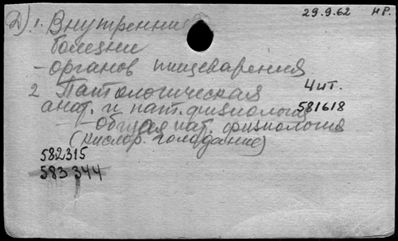 29.9.62 НР.
2) 1. Внутренние
болезни
- органов пищеварения
2 Патологическая 4 шт.
анат. и пат. физиология 581618
- Общая пат. физиология
(кислор. голодание)
582315
583344